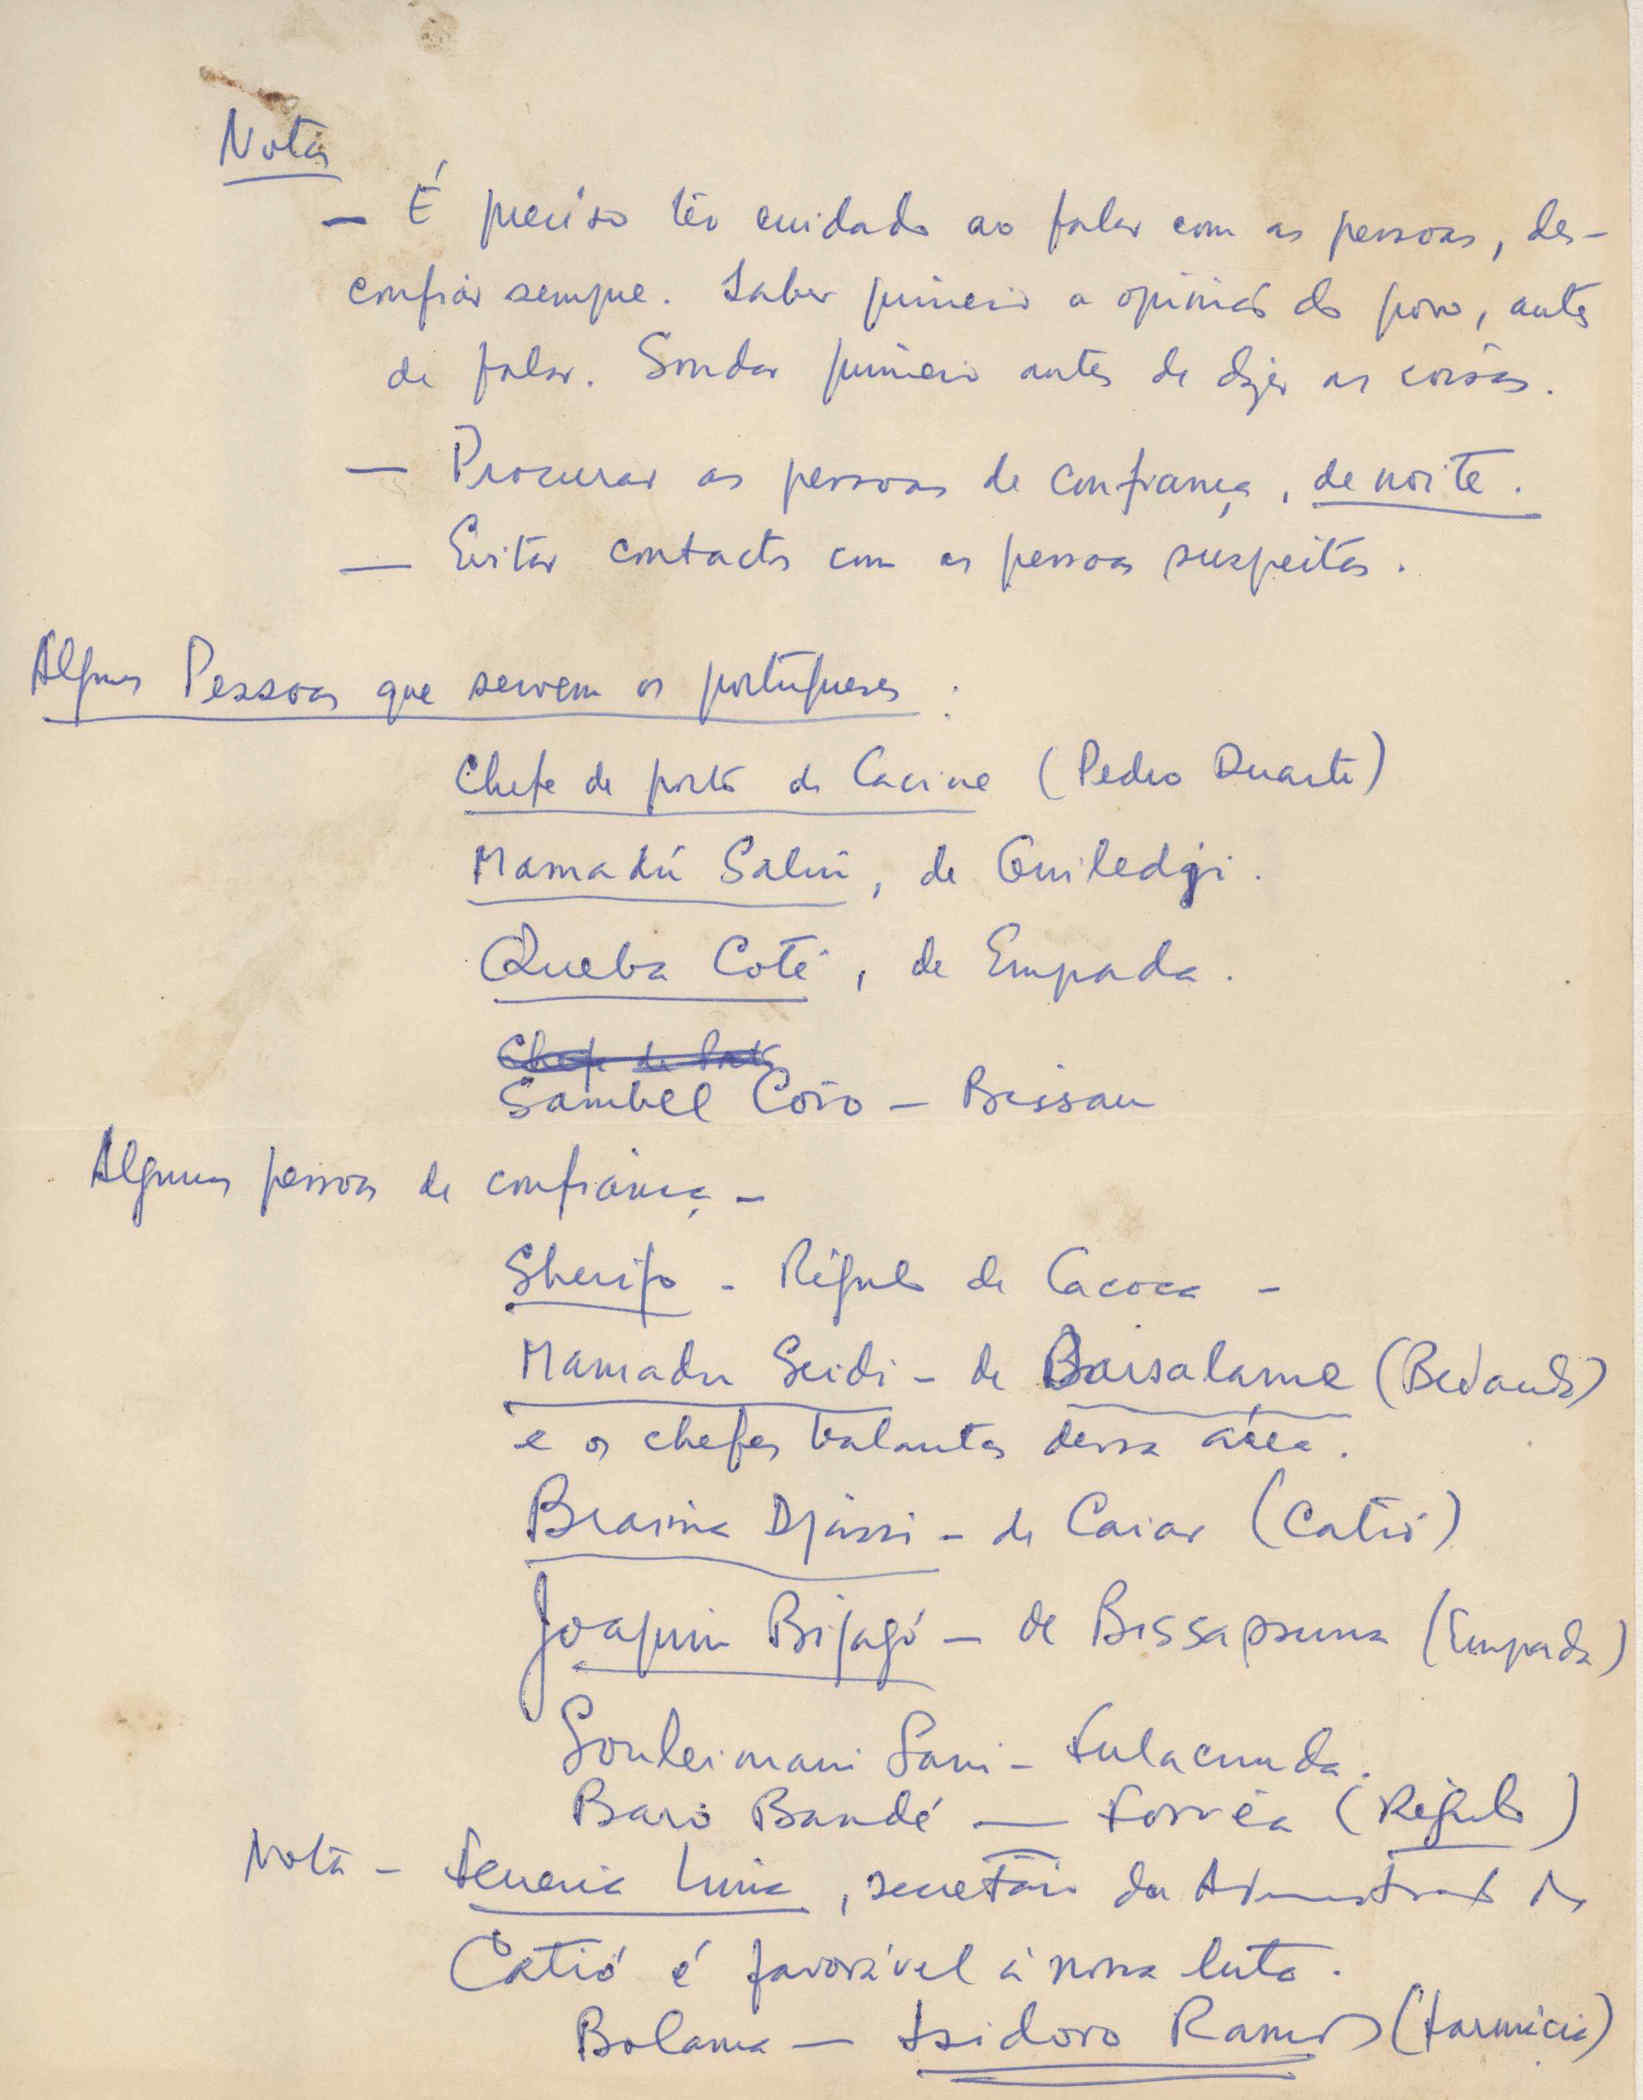 Notas
— É preciso ter cuidado ao falar com as pessoas, des-
confiar sempre. Saber primeiro a opinião do povo, antes
de falar. Sondar primeiro antes de dizer as coisas.
— Procurar as pessoas de confiança, de noite.
— Evitar contactos com as pessoas suspeitas.
Algumas Pessoas que servem os portugueses:
Chefe de posto de Cacine (Pedro Duarte)
Mamadú Saliú, de Guiledgi.
Queba Coté, de Empada.
Chefe de
Sambel Coio — Bissau
Algumas pessoas de confiança —
Sherifo - Régulo de Cacoca -
Mamadu Seidi - de Baissalame (Bedanda)
e os chefes balantas dessa área.
Braima Djassi - de Caiar (Catió)
Joaquim Bijagó - de Bissapsuma (Empada)
Souleimani Sani - Fulacunda.
Baro Bandé — Forréa (Régulo)
Nota - Lima, secretário da Administração de
Catió é favorável à nossa luta.
Bolama — Isidoro Ramos (Farmácia)